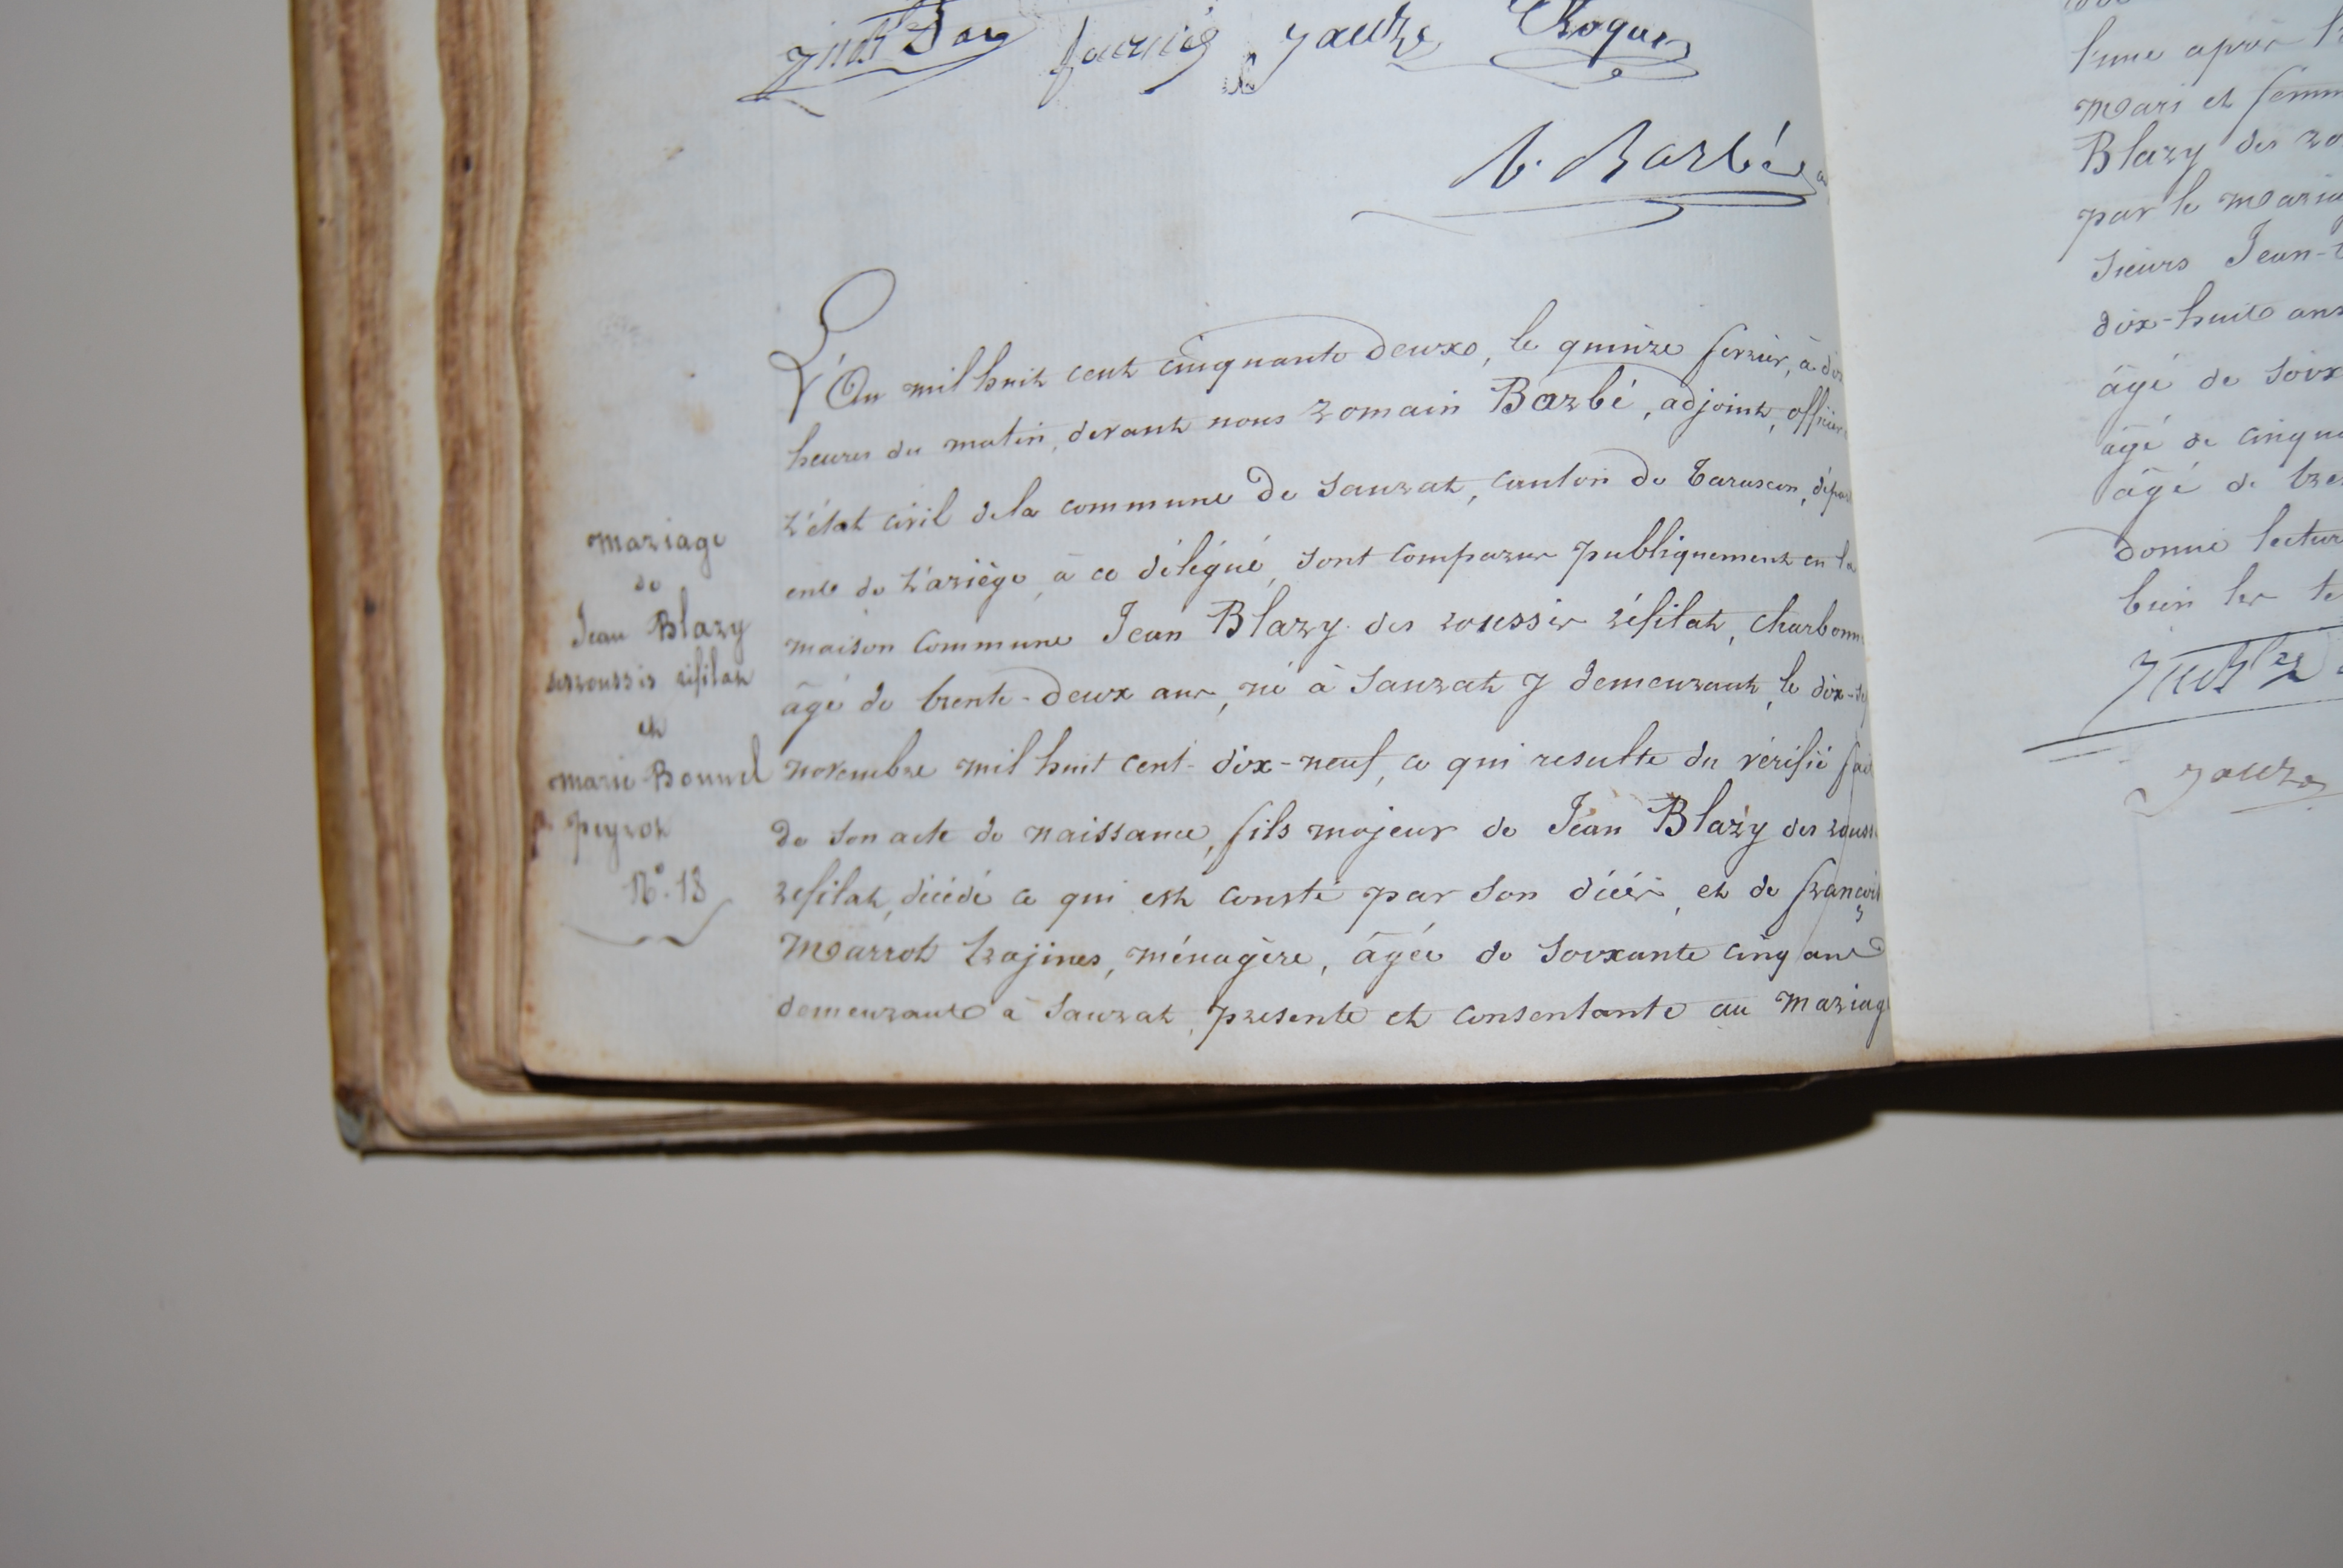 Fauré Jauze Roques
R. Barbé
L'An mil huit cent cinquante deuxe, le quinze fevrier, à dix
heures du matin, devant nous Romain Barbé, adjoint, officier
l'état civil dela commune De Saurat, canton de Tarascon, dépar
ent de l'ariège, à ce délégué, sont comparus publiquement en la
maison commune Jean Blazy des roussis réfilat, charbonn
âgé de trente-deux ans, né à Saurat y demeurant, le dix-se
novembre mil huit cent-dix-neuf, ce qui resulte du vérifié fait
de son acte de naissance, fils majeur de Jean Blazy des rouss
refilat, décédé ce qui est consté par son décès, et de françois
Marrot trajines, ménagère, âgée de soixante cinq ans
demeurant à Saurat, presente et consentante au mariag
mariage
de
Jean Blazy
desroussis réfilat
et
marie Bonnel
peyrot
N°. 13
l'une après l'
mari et femm
Blazy des ro
par le maria
sieurs Jean-
dix-huit ans
âgé de soix
âgé de cinqua
âgé de tre
donné lectur
bien les te
Jauze